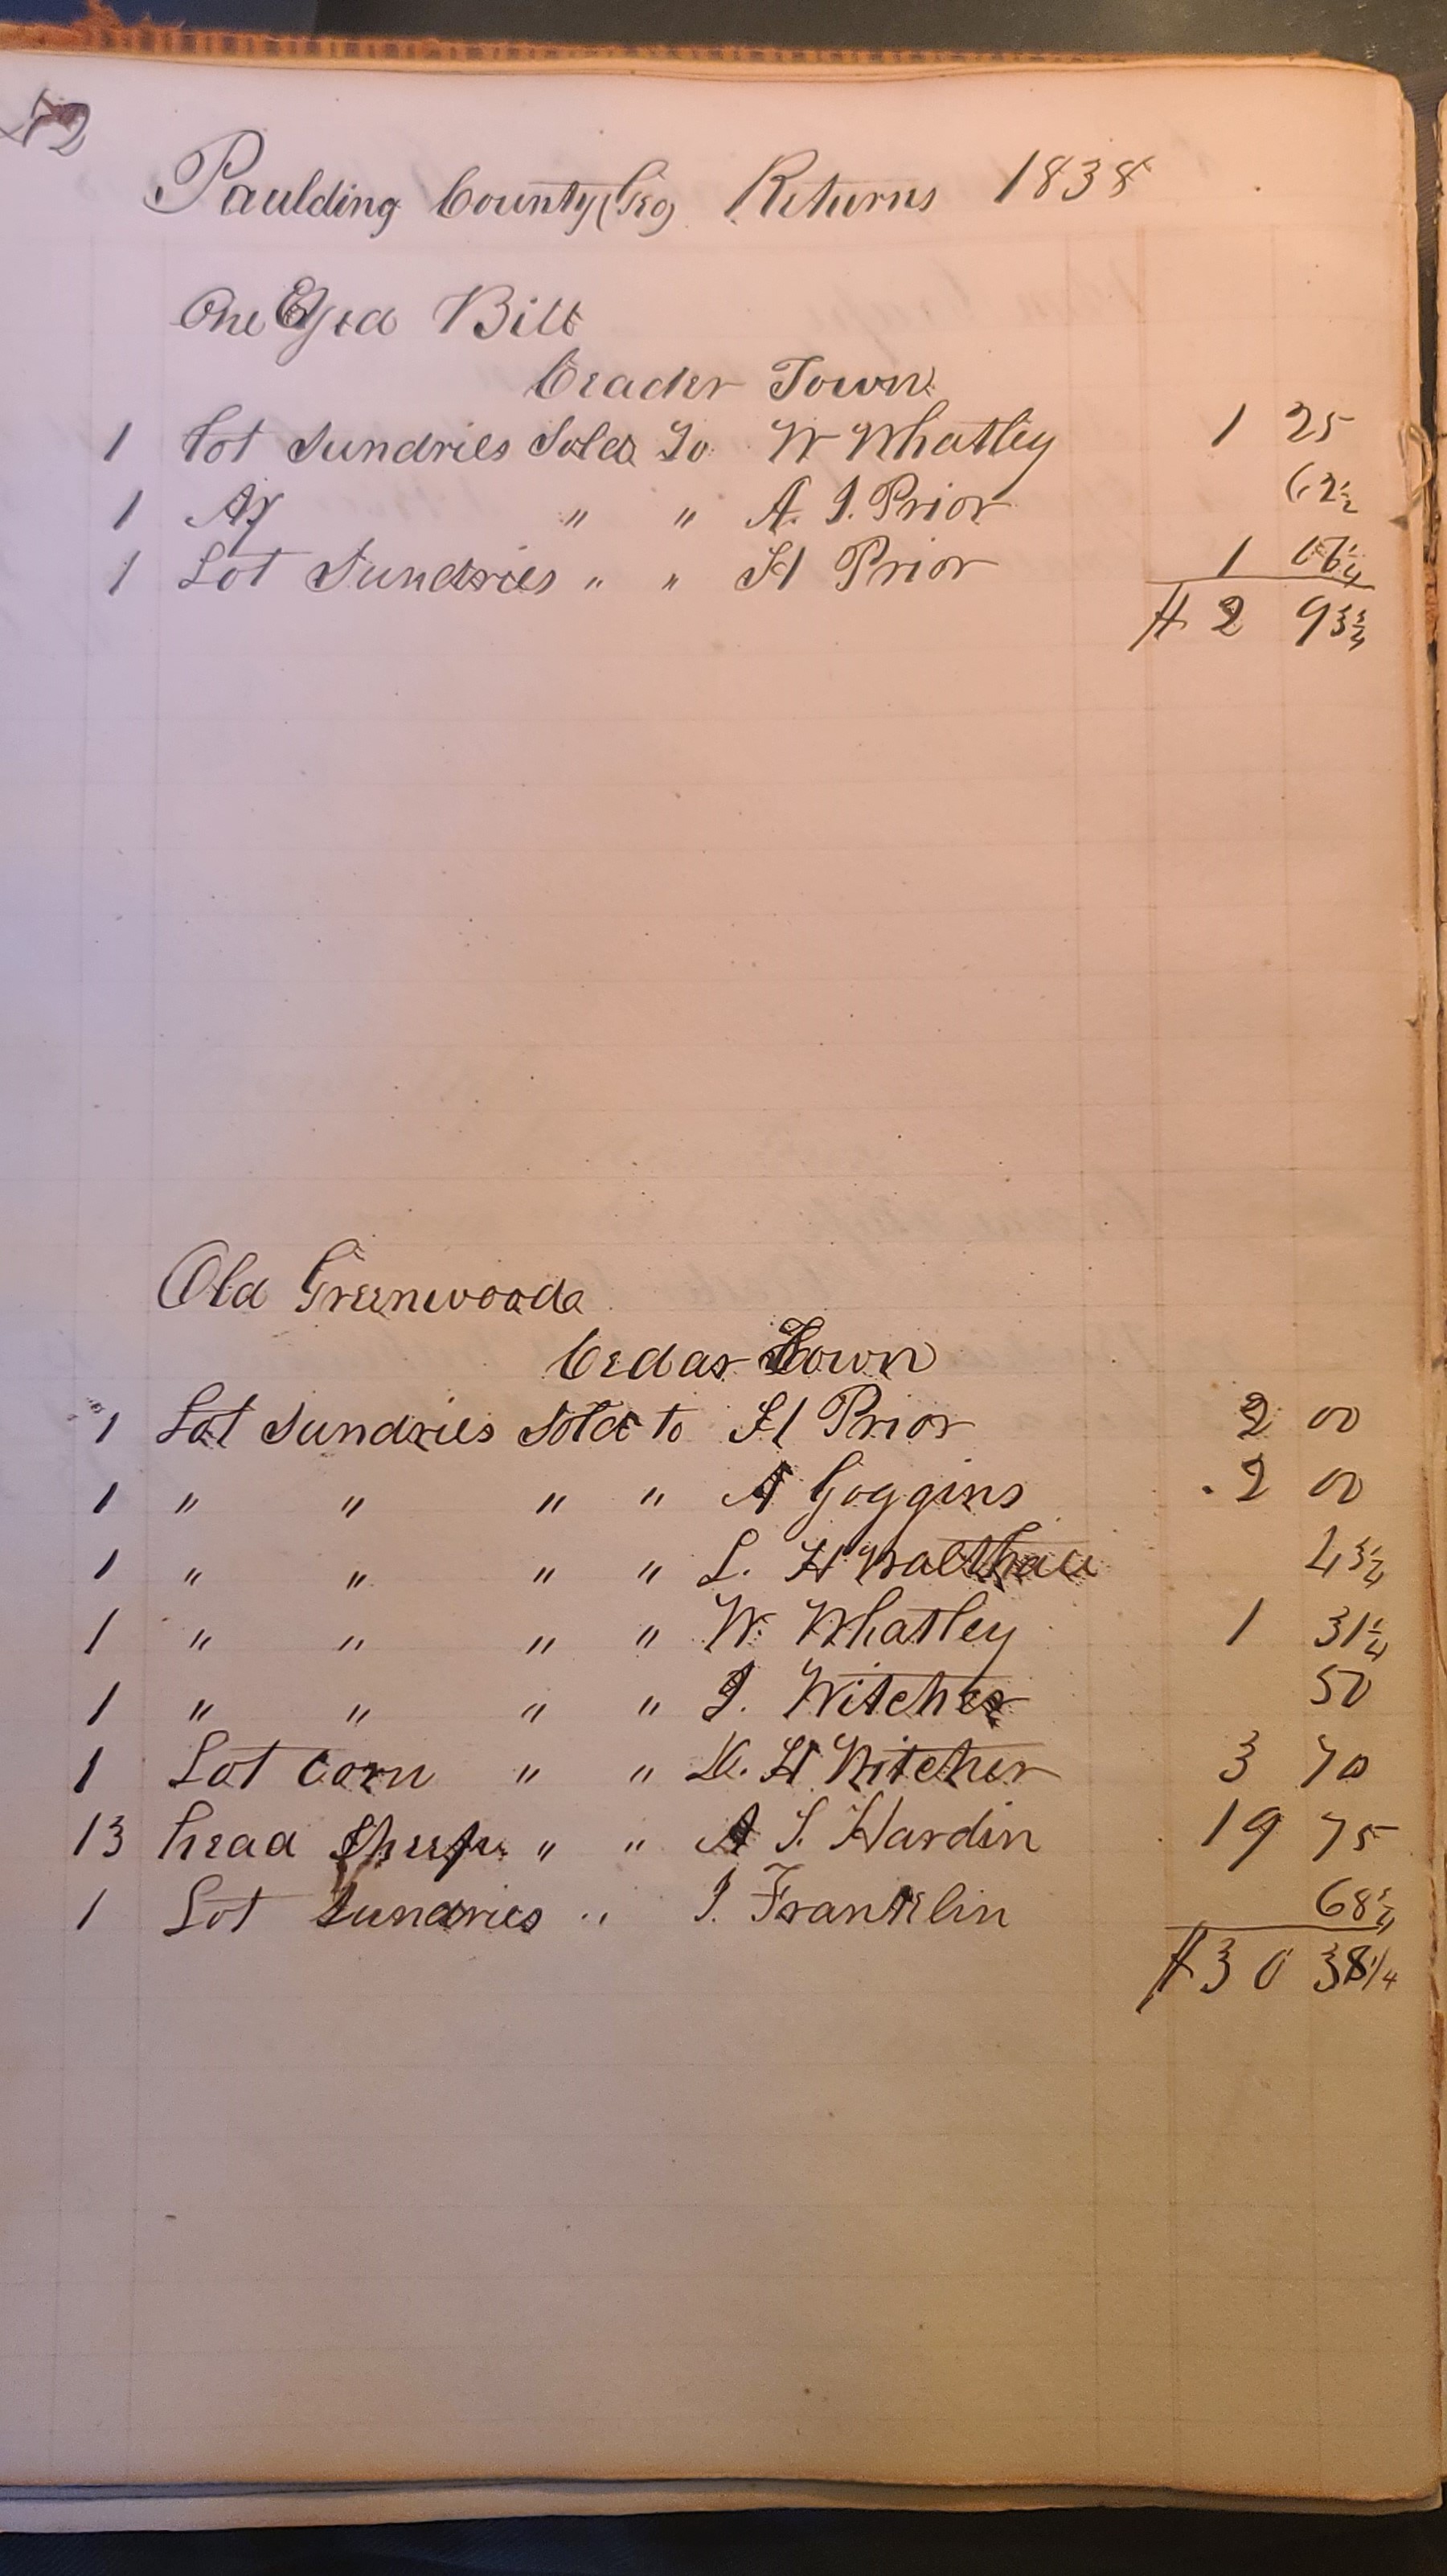 72
Paulding County (Geo) Returns 1838
One Eyed Bill
Ceader Town
1 Lot Sundries Sold To W Whatley 1 25
1 Ax " " A. J. Prior 62½
1 Lot Sundries " " H Prior 1 06¼
$2 93¾
Old Greenwood
Cedar Town
1 Lot Sundries Sold to H Prior 2 00
1 " " " " A Goggins 2 00
1 " " " " L. H Walthall 43¾
1 " " " " W. Whatley 1 31¼
1 " " " " J. Witcher 50
1 Lot Corn " " D. H Witcher 3 70
13 head Sheep " " A S. Hardin 19 75
1 Lot Sundries " J. Franklin 68¾
$30 38¼